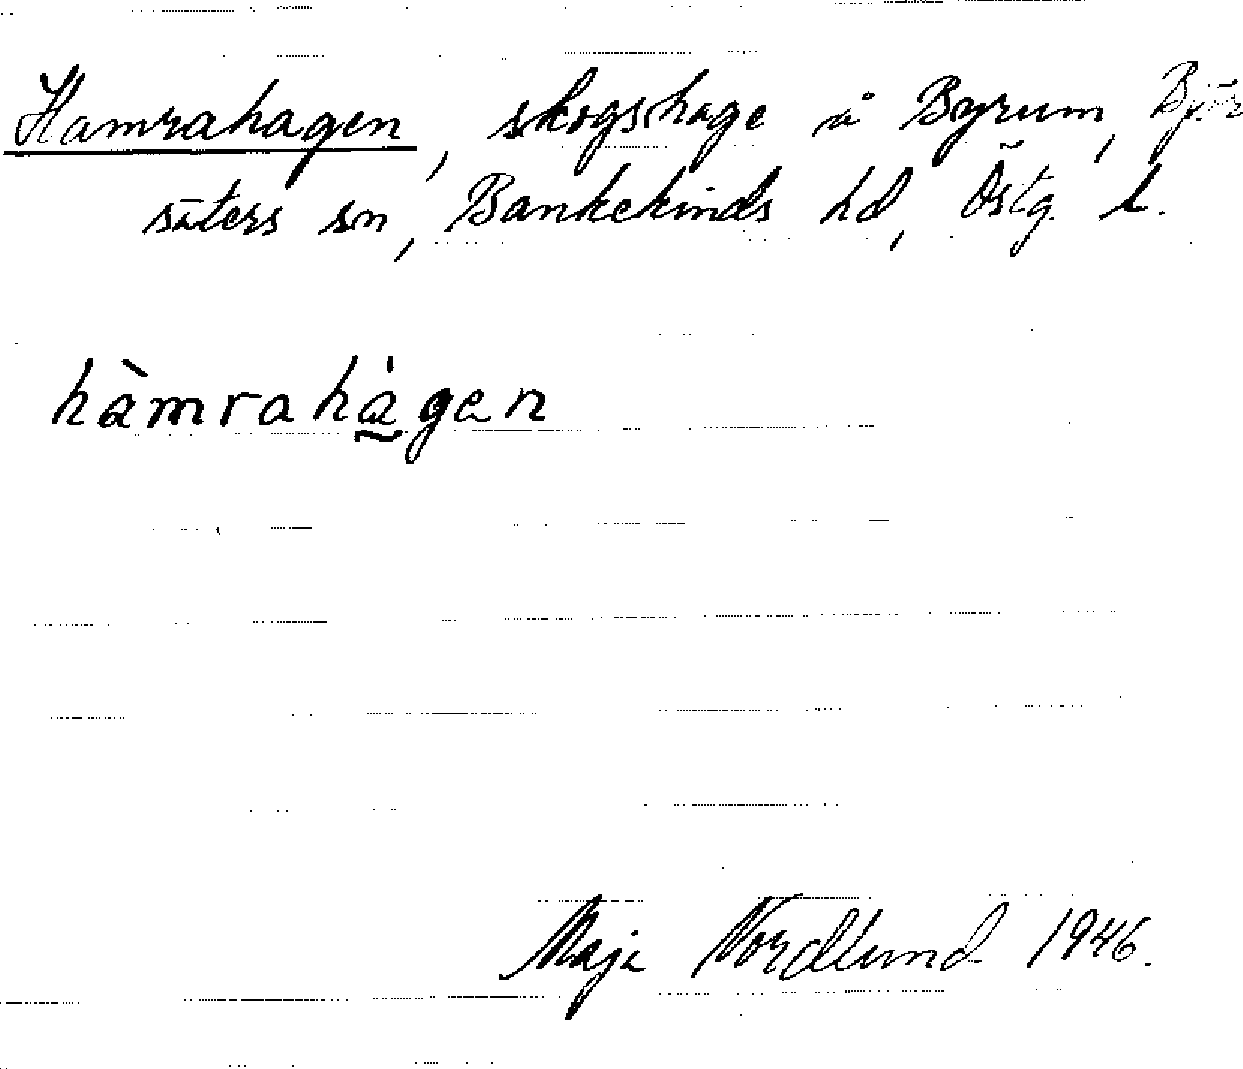 Hamrahagen, skogshage å Byrum, Björ
säters sn, Bankekinds hd, Östg. l.
hàmrahá̱gen
Maja Nordlund 1946.